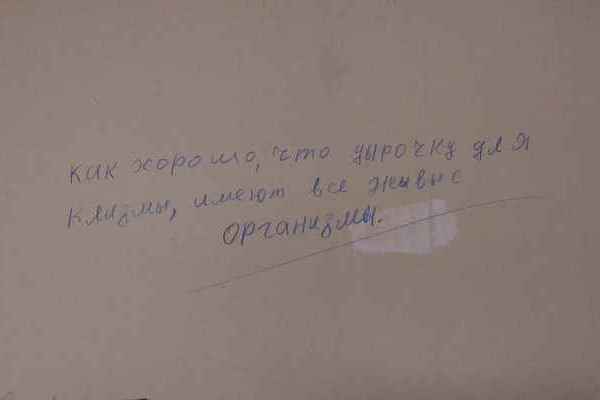 как хорошо, что дырочку для
клизмы, имеют все живые
организмы.